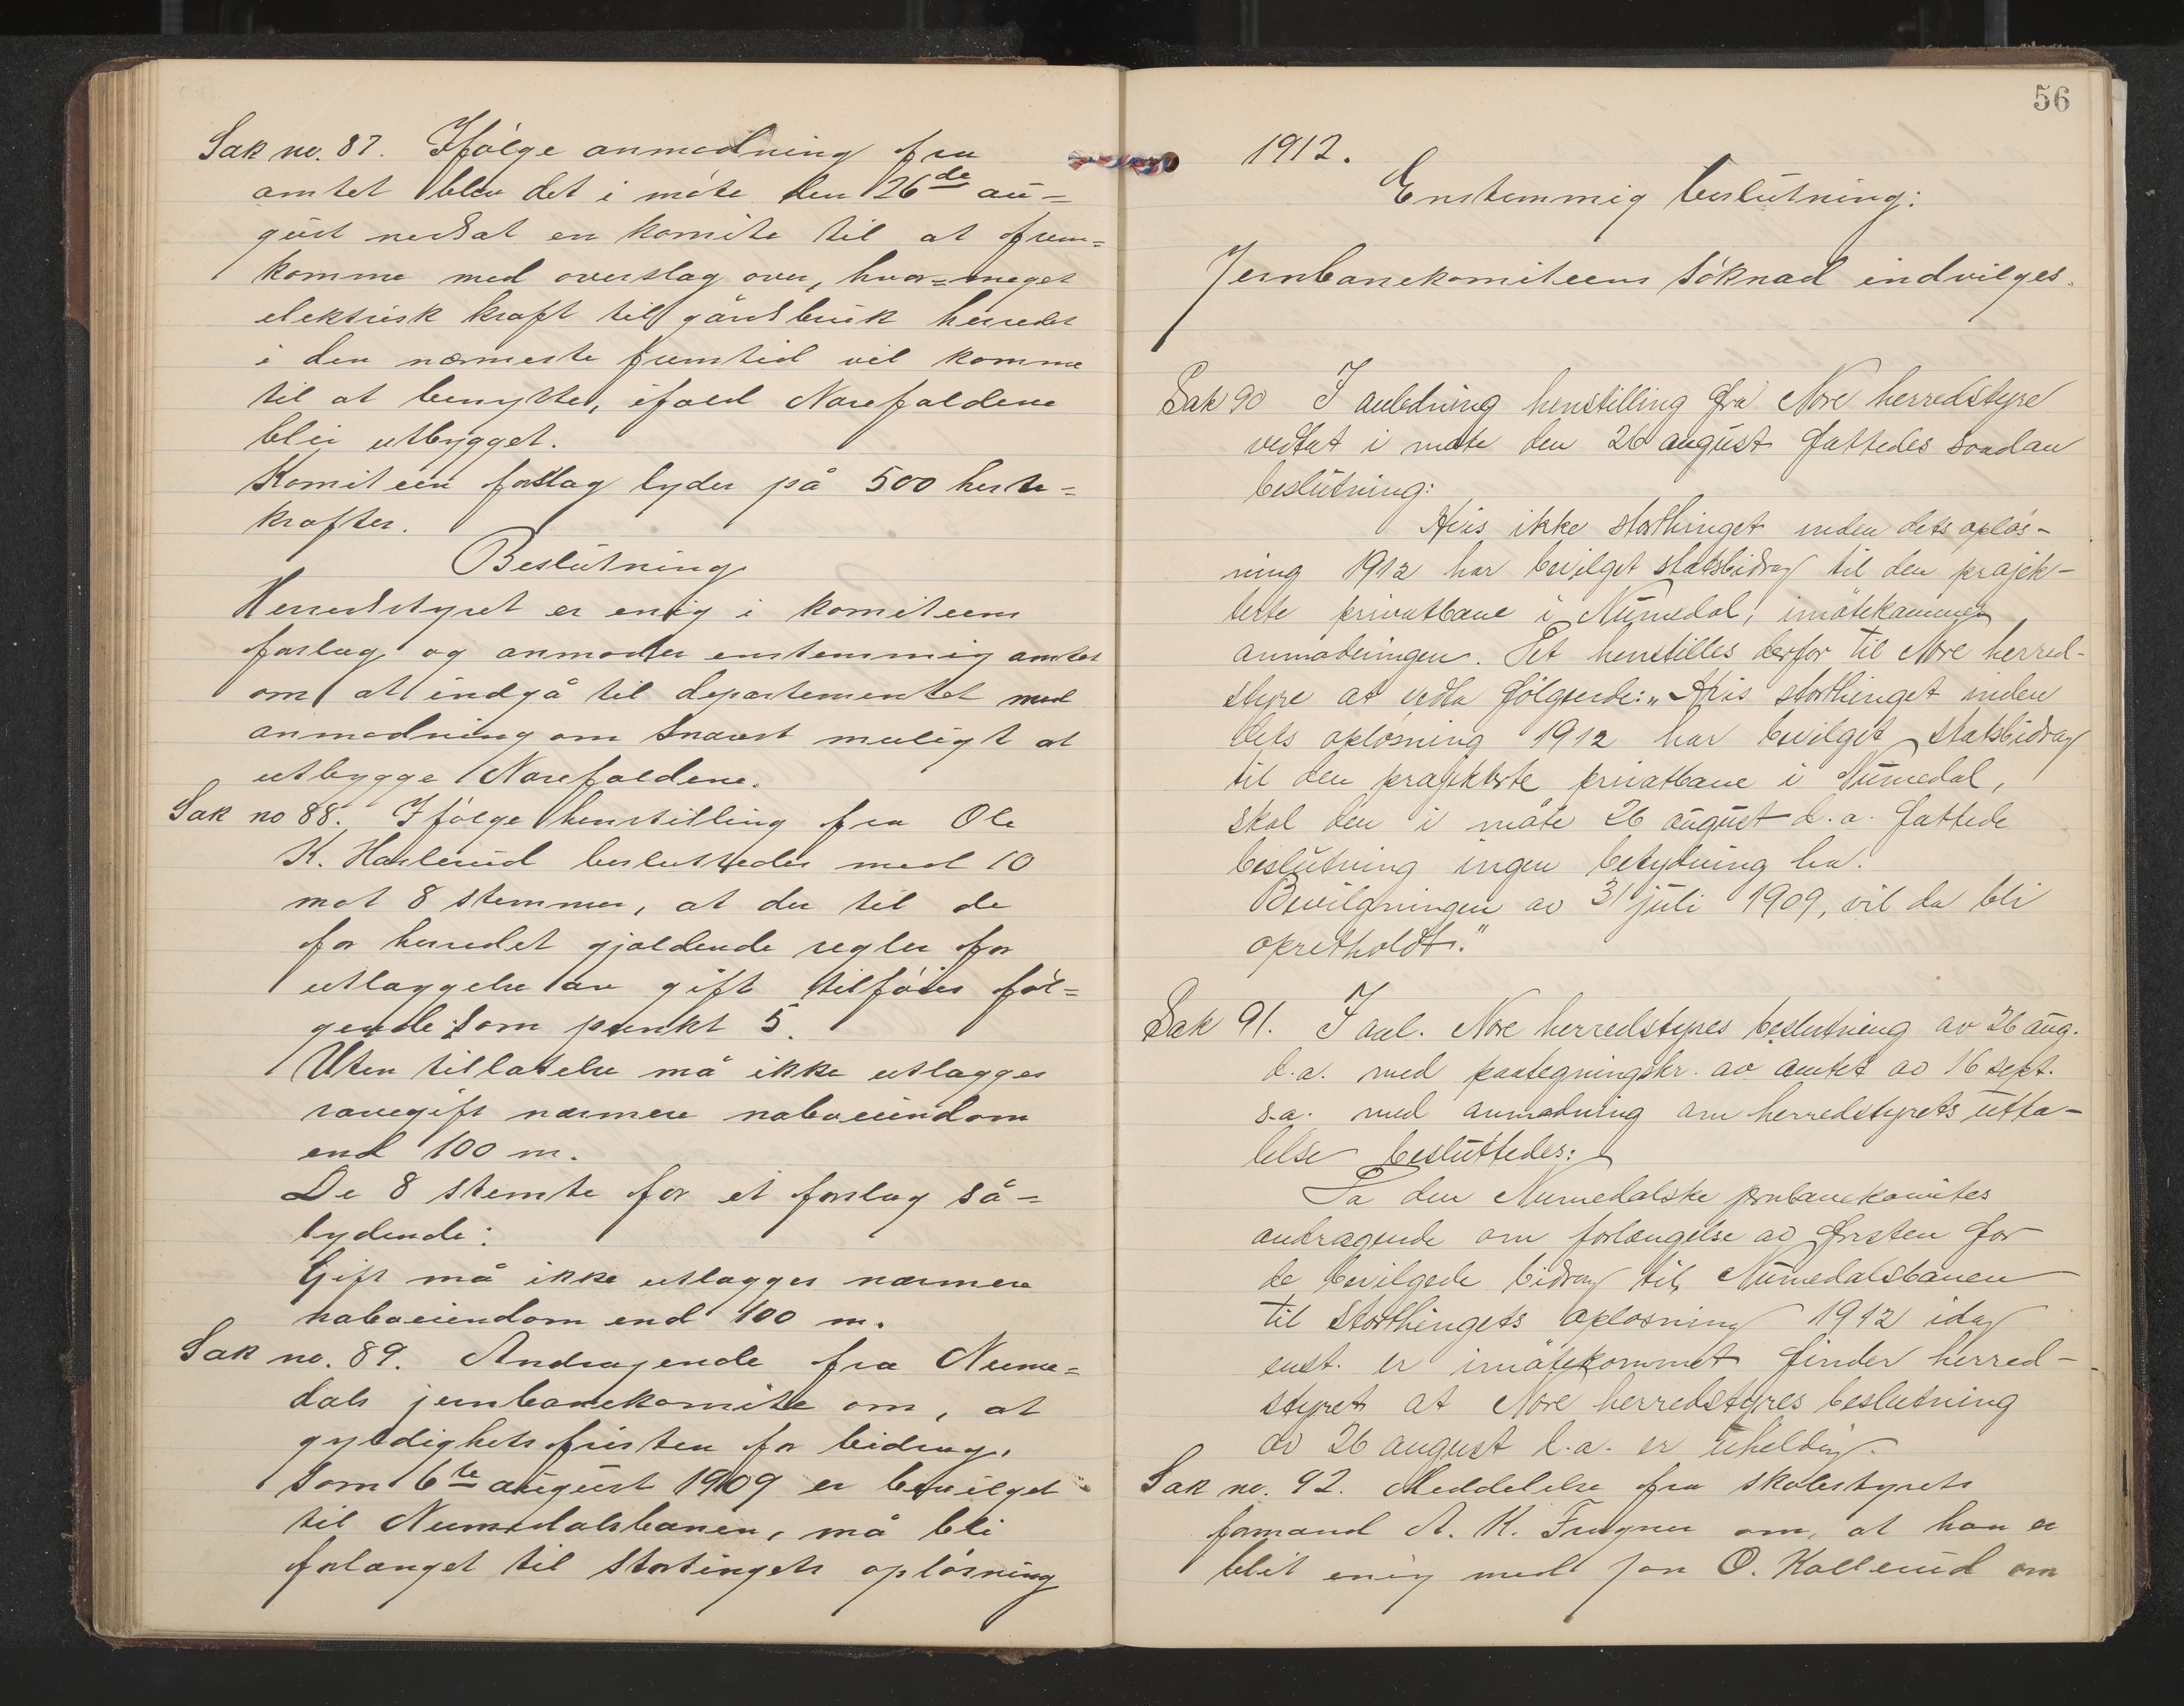 Sak no. 87. Ifölge anmodning fra
amtet blev det i möte den 26de au=
gust nedsat en komite til at frem=
komme med overslag over, hvor=meget
elektrisk kraft til gårdsbruk herredet
i den nærmeste fremtid vil komme
til at benytte, ifald Norefaldene
blir utbygget.
Komiteen forslag lyder på 500 heste=
kræfter.
Beslutning
Herredstyret er enig i komiteens
forslag og anmoder enstemmig amtet
om at indgå til departementet med
anmodning om snarest muligt at
utbygge Norefaldene.
Sak no 88. Ifölge henstilling fra Ole
K. Haslerud besluttedes med 10
mot 8 stemmer, at der til de
for herredet gjældende regler for
utlæggelse av gift tilföies föl=
gende som punkt 5.
Uten tillatelse må ikke utlægges
rævegift nærmere naboeiendom
end 100 m.
De 8 stemte for et forslag så=
lydende:
Gift må ikke utlægges nærmere
naboeiendom end 100 m.
Sak no. 89. Andragende fra Nume=
dals jernbanekomite om, at
gyldighetsfristen for bidrag,
som 6te august 1909 er bevilget
til Numedalsbanen, må bli
forlænget til stortingets oplösning
56
1912.
Enstemmig beslutning:
Jernbanekomiteens söknad indvilges.
Sak 90 I anledning henstilling fra Nore herredstyre
vedtat i møte den 26 august fattedes saadan
beslutning:
Hvis ikke storthinget inden dets opløs-
ning 1912 har bevilget statsbidrag til den prosjek-
terte privatbane i Numedal, imøtekommes
anmodningen. Det henstilles derfor til Nore herred-
styre at vedta følgende: „Hvis storthinget inden
dets opløsning 1912 har bevilget statsbidrag
til den prosjekterte privatbane i Numedal,
skal den i møte 26 august d.a. fattede
beslutning ingen betydning ha.
Bevilgningen av 31 juli 1909, vil da bli
opretholdt."
Sak 91. I anl. Nore herredstyres beslutning av 26 aug.
d.a. med paategningskr. av amtet av 16 sept.
s.a. med anmodning om herredstyrets utta-
lelse besluttedes:
Da den Numedalske jernbanekomites
andragende om forlængelse av fristen for
de bevilgede bidrag til Numedalsbanen
til storthingets opløsning 1912 idag
enst. er imøtekommet finder herred-
styret at Nore herredstyres beslutning
av 26 august d.a. er uheldig.
Sak no. 92. Meddelelse fra skolestyrets
formand A. K. Frogner om, at han er
blit enig med Jon O. Kallerud om